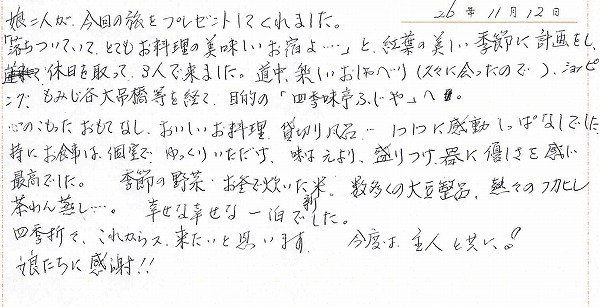 26年11月12日
娘二人が、今回の旅をプレゼントしてくれました。
「落ちついていて、とてもお料理の美味しいお宿よ…」と、紅葉の美しい季節に計画をし、
休日を取って、3人で来ました。道中、楽しいおしゃべり(久々に会ったので)、ショッピ
ング、もみじ谷大吊橋等を経て、目的の「四季味亭ふじや」へ。
心のこもったおもてなし、おいしいお料理、貸切り風呂… 1つ1つに感動しっぱなしでした。
特にお食事は、個室でゆっくりいただけ、味はもとより、盛りつけ、器に優しさを感じ
最高でした。 季節の野菜、お釜で炊いた新米、数多くの大豆製品、熱々のフカヒレ
茶わん蒸し…。 幸せな幸せな一泊でした。
四季折々、これからも又、来たいと思います。 今度は、主人と共に。
娘たちに感謝!!